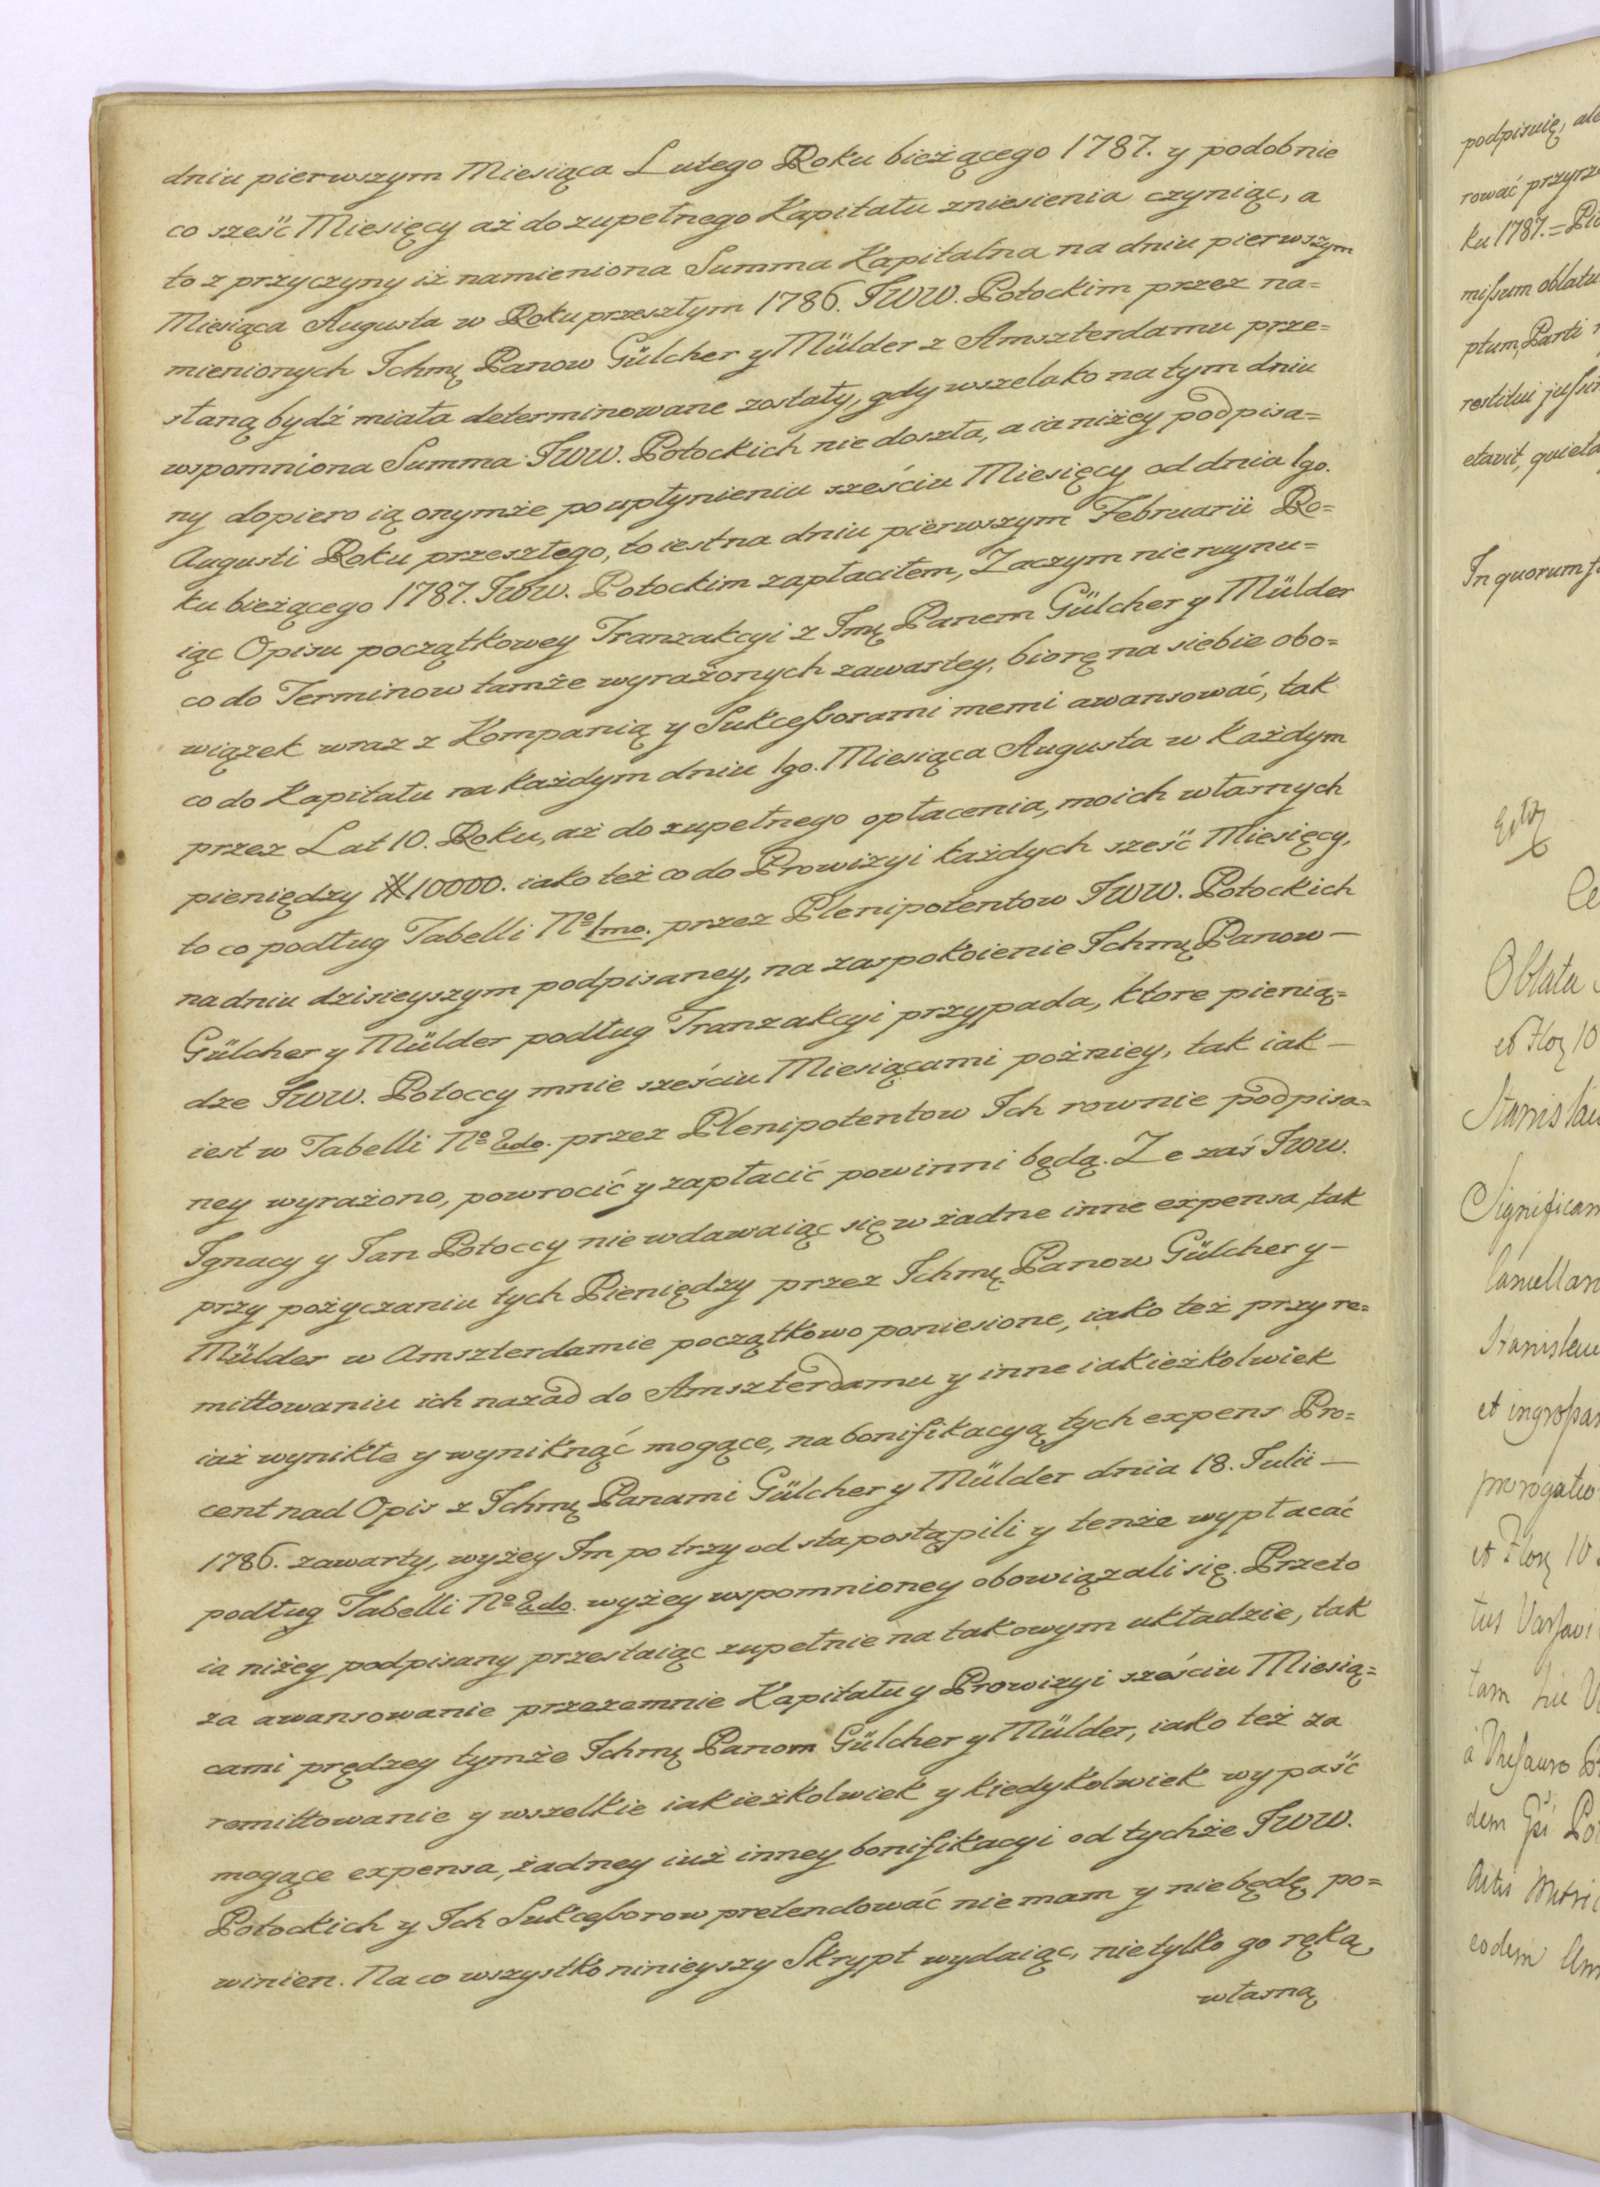 dniu pierwszym Miesiąca Lutego Roku bieżącego 1787. y podobnie
co sześć Miesięcy aż do zupełnego Kapitału zniesienia czyniąc, a
to z przyczyny iż namieniona Summa Kapitalna na dniu pierwszym
Miesiąca Augusta w Roku przeszłym 1786. JWW. Potockim przez na=
mienionych Ichmę Panow Gülcher y Mülder z Amszterdamu prze=
słaną bydź miała determinowane zostały, gdy wszelako na tym dniu
wspomniona Summa JWW. Potockich nie doszła, a ia niżey podpisa=
ny dopiero ią onymże po upłynieniu sześciu Miesięcy od dnia 1go.
Augusti Roku przeszłego, to iest na dniu pierwszym Februarii Ro=
ku bieżącego 1787. JWW. Potockim zapłaciłem, Zaczym nie ruynu=
iąc Opisu początkowey Tranzakcyi z Jmę Panem Gülcher y Mülder
co do Terminow tamże wyrażonych zawartey, biorę na siebie obo=
wiązek wraz z Kompanią y Sukceßorami memi awansować, tak
co do Kapitału na każdym dniu 1go. Miesiąca Augusta w każdym
przez Lat 10. Roku, aż do zupełnego opłacenia, moich własnych
pieniędzy # 10000. iako też co do Prowizyi każdych sześć Miesięcy,
to co podług Tabelli No 1mo. przez Plenipotentow JWW. Potockich
na dniu dzisieyszym podpisaney, na zaspokoienie Ichmę Panow —
Gülcher y Mülder podług Tranzakcyi przypada, ktore pienią=
dze JWW. Potoccy mnie sześciu Miesiącami pożniey, tak iak —
iest w Tabelli No 2do. przez Plenipotentow Ich rownie podpisa=
ney wyrażono, powrocić y zapłacić powinni będą. Ze zaś JWW.
Ignacy y Jan Potoccy nie wdawaiąc się w żadne inne expensa, tak
przy pożyczaniu tych Pieniędzy przez Ichmę Panow Gülcher y —
Mülder w Amszterdamie początkowo poniesione, iako też przy re=
mittowaniu ich nazad do Amszterdamu y inne iakieżkolwiek
iaż wynikłe y wyniknąć mogące, na bonifikacyą tych expens Pro=
cent nad Opis z Ichmę Panami Gülcher y Mülder dnia 18. Julii —
1786. zawarty, wyżey Im po trzy od sta postąpili y tenże wypłacać
podług Tabelli No 2do. wyżey wspomnioney obowiązali się. Przeto
ia niżey podpisany przestaiąc zupełnie na takowym układzie, tak
za awansowanie przezemnie Kapitału y Prowizyi sześciu Miesią=
cami prędzey tymże Ichmę Panom Gülcher y Mülder, iako też za
remittowanie y wszelkie iakieżkolwiek y kiedykolwiek wypaść
mogące expensa, żadney iuż inney bonifikacyi od tychże JWW.
Potockich y Ich Sukceßorow pretendować nie mam y nie będę po=
winien. Na co wszystko ninieyszy Skrypt wydaiąc, nietylko go ręką
własną
podpisuię, ale
rować przyrze
ku 1787. =
mißum oblatu
ptum, Parti
restitui jußi
etavit, quieta
In quorum f
Oblata
et Flor 10
Stanislau
Significan
Camellan
Stanislau
et ingroßa
prorogatio
et Flor 10
tus Varsavi
tam hic
a Thesauro
dem
eodem